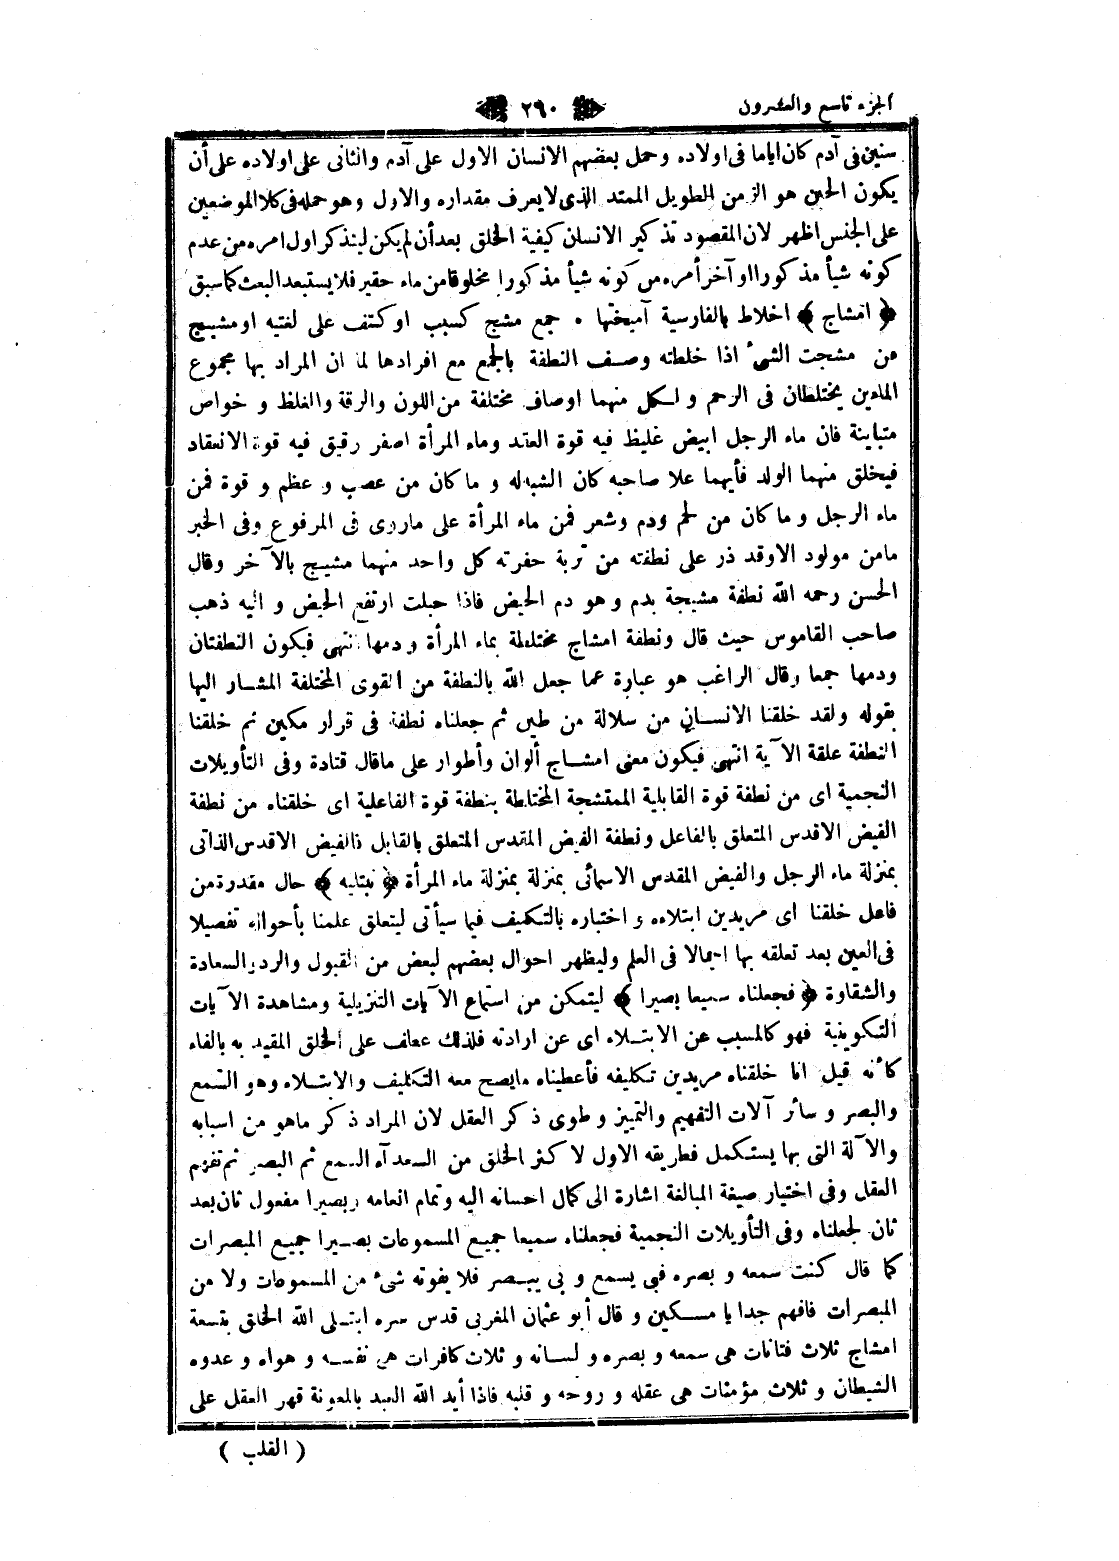 الجزء تاسع والعشرون
٢٩٠
سنين فى آدم كان اياما فى اولاده وحمل بعضهم الانسان الاول على آدم والثانى على اولاده على أن
يكون الحين هو الزمن الطويل الممتد الذى لا يعرف مقداره والاول وهو حمله فى كلا الموضعين
على الجنس اظهر لان المقصود تذكير الانسان كيفية الخلق بعد أن لم يكن ليتذكر اول امره من عدم
كونه شيأ مذكورا او آخر أمره من كونه شيأ مذكورا مخلوقا من ماء حقير فلا يستبعد البعث كما سبق
﴿ امشاج ﴾ اخلاط بالفارسية آميختها . جمع مشج كسبب او كتف على لغتيه او مشيج
من مشجت الشئ اذا خلطته وصف النطفة بالجمع مع افرادها لما ان المراد بها مجموع
الماءين يختلطان فى الرحم و لكل منهما اوصاف مختلفة من اللون والرقة والغلظ و خواص
متباينة فان ماء الرجل ابيض غليظ فيه قوة العقد وماء المرأة اصفر رقيق فيه قوة الانعقاد
فيخلق منهما الولد فأيهما علا صاحبه كان الشبه له و ما كان من عصب و عظم و قوة فمن
ماء الرجل و ما كان من لحم ودم وشعر فمن ماء المرأة على ماروى فى المرفوع وفى الخبر
مامن مولود الاوقد ذر على نطفته من تربة حفرته كل واحد منهما مشيج بالآخر وقال
الحسن رحمه الله نطفة مشيجة بدم و هو دم الحيض فاذا حبلت ارتفع الحيض و اليه ذهب
صاحب القاموس حيث قال ونطفة امشاج مختلطة بماء المرأة ودمها انتهى فيكون النطفتان
ودمها جمعا وقال الراغب هو عبارة عما جعل الله بالنطفة من القوى المختلفة المشار اليها
بقوله ولقد خلقنا الانسان من سلالة من طين ثم جعلناه نطفة فى قرار مكين ثم خلقنا
النطفة علقة الآية انتهى فيكون معنى امشاج ألوان وأطوار على ماقال قتادة وفى التأويلات
النجمية اى من نطفة قوة القابلية الممتشجة المختلطة بنطفة قوة الفاعلية اى خلقناه من نطفة
الفيض الاقدس المتعلق بالفاعل ونطفة الفيض المقدس المتعلق بالقابل فالفيض الاقدس الذاتى
بمنزلة ماء الرجل والفيض المقدس الاسمائى بمنزلة بمنزلة ماء المرأة ﴿ نبتليه ﴾ حال مقدرة من
فاعل خلقنا اى مريدين ابتلاءه و اختباره بالتكليف فيما سيأتى ليتعلق علمنا بأحواله تفصيلا
فى العين بعد تعلقه بها اجمالا فى العلم وليظهر احوال بعضهم لبعض من القبول والرد والسعادة
والشقاوة ﴿ فجعلناه سميعا بصيرا ﴾ ليتمكن من استماع الآيات التنزيلية ومشاهدة الآيات
التكوينية فهو كالمسبب عن الابتلاء اى عن ارادته فلذلك عطف على الخلق المقيد به بالفاء
كأنه قيل انا خلقناه مريدين تكليفه فأعطيناه مايصح معه التكليف والابتلاء وهو السمع
والبصر و سائر آلات التفهيم والتمييز و طوى ذكر العقل لان المراد ذكر ماهو من اسبابه
والآلة التى بها يستكمل فطريقه الاول لاكثر الخلق من السعدآء السمع ثم البصر ثم تفهم
العقل وفى اختيار صيغة المبالغة اشارة الى كمال احسانه اليه وتمام انعامه وبصيرا مفعول ثان بعد
ثان لجعلناه وفى التأويلات النجمية فجعلناه سميعا جميع المسموعات بصيرا جميع المبصرات
كما قال كنت سمعه و بصره فبى يسمع و بى يبصر فلا يفوته شئ من المسموعات ولا من
المبصرات فافهم جدا يا مسكين و قال أبو عثمان المغربى قدس سره ابتلى الله الخلق بتسعة
امشاج ثلاث فتانات هى سمعه و بصره و لسانه و ثلاث كافرات هى نفسه و هواه و عدوه
الشيطان و ثلاث مؤمنات هى عقله و روحه و قلبه فاذا أيد الله العبد بالمعونة قهر العقل على
( القلب )